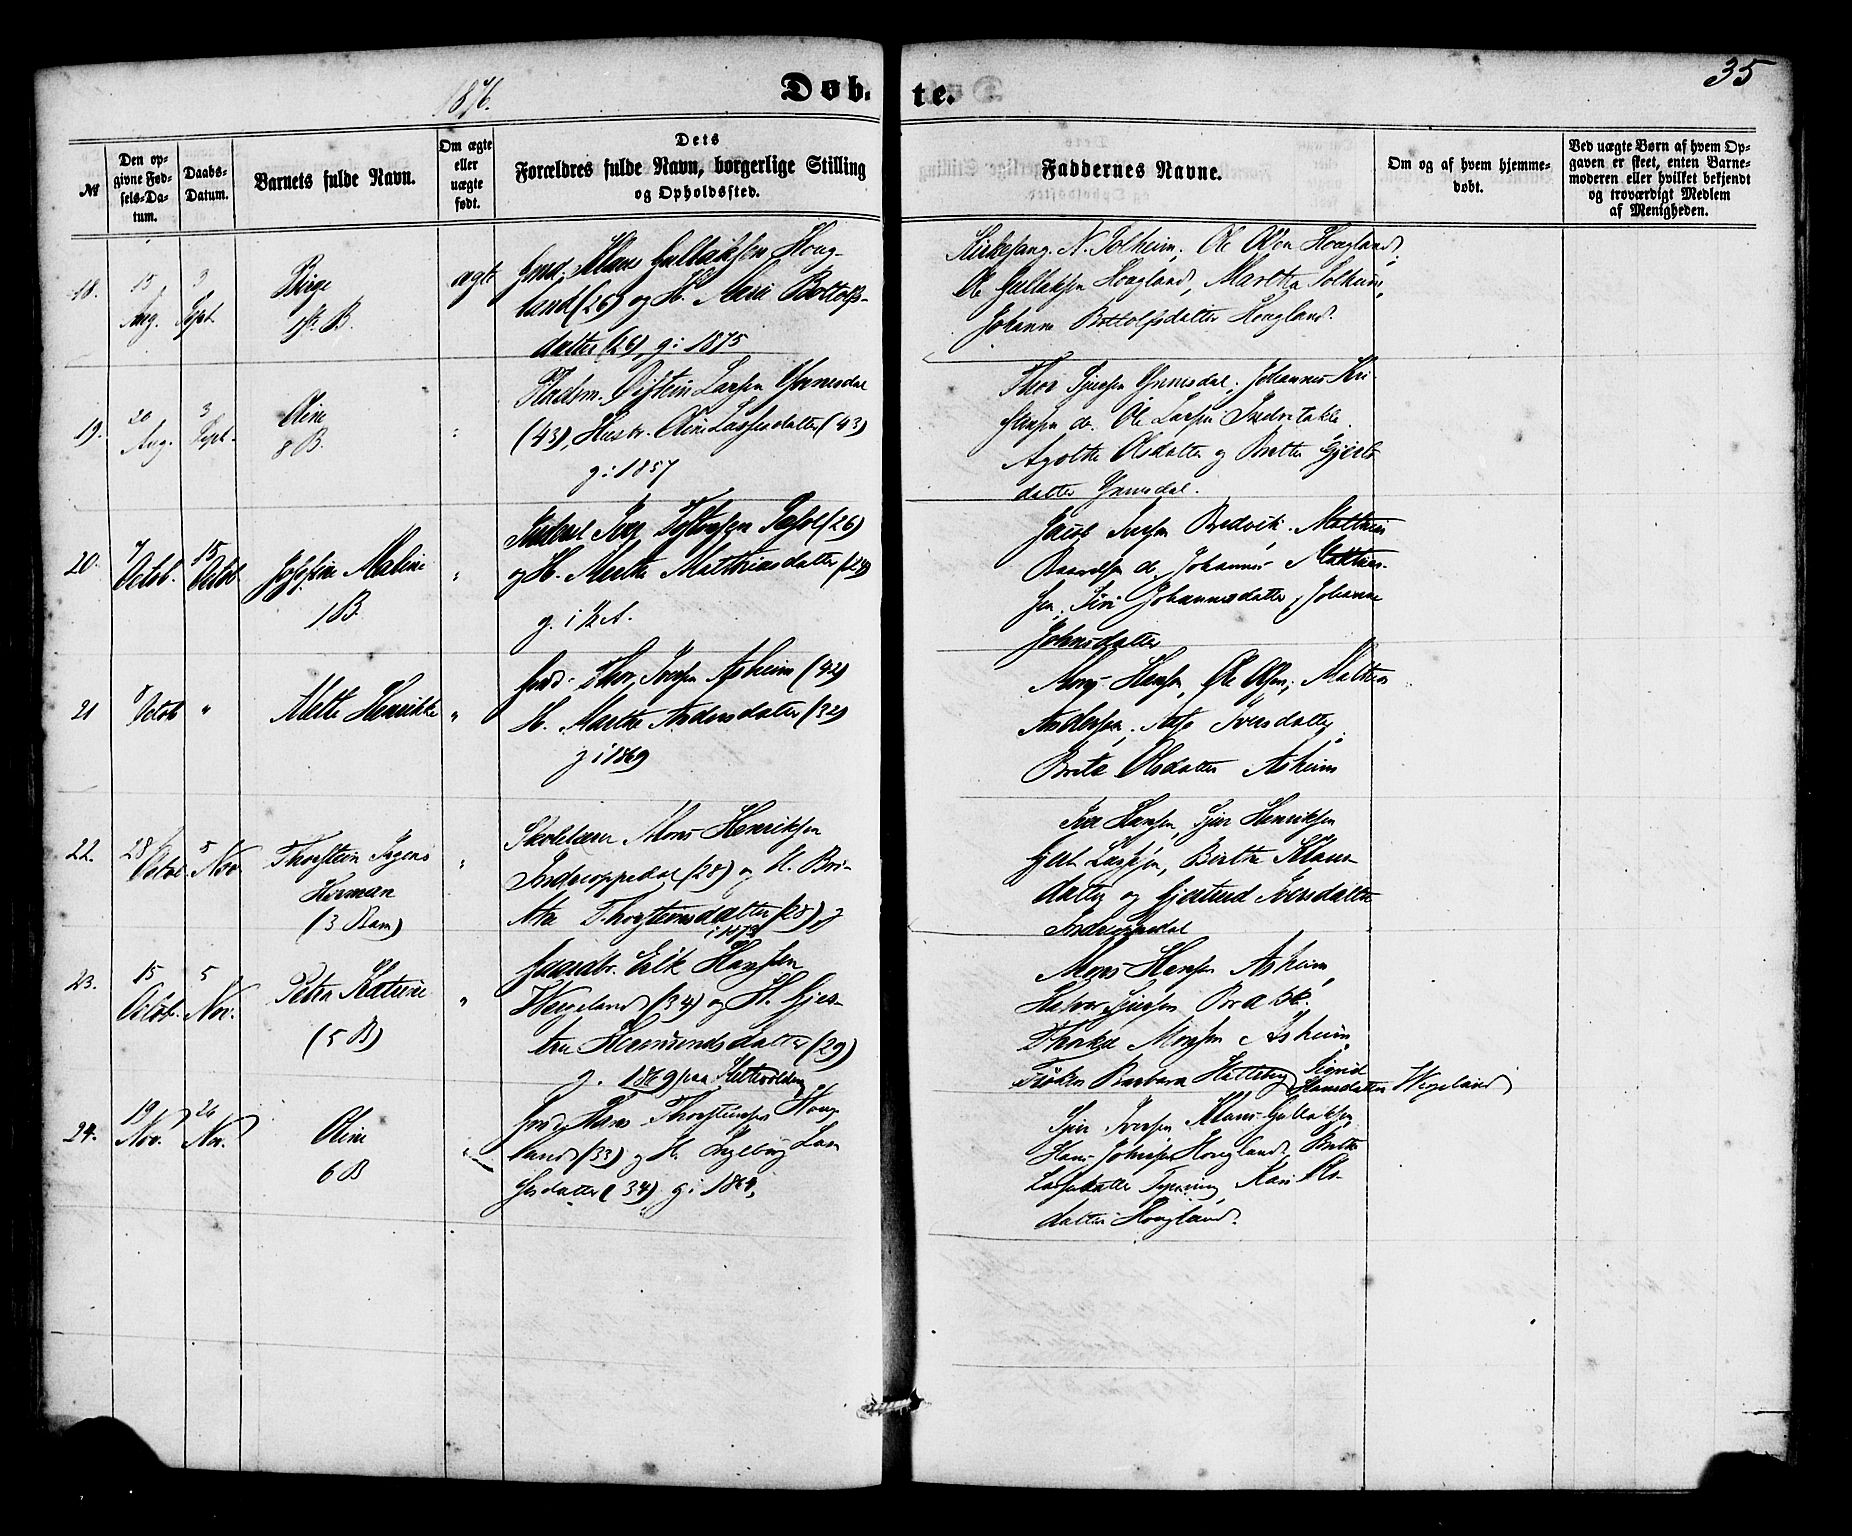 1876.
Døb.
te.
35
№
Den op-
givne Fød-
sels-Da-
tum.
Daabs-
Datum.
Barnets fulde Navn.
Om ægte
eller
uægte
født.
Dets
Forældres fulde Navn, borgerlige Stilling
og Opholdssted.
Faddernes Navne.
Om og af hvem hjemme-
døbt.
Ved uægte Børn af hvem Op-
gaven er skeet, enten Barne-
moderen eller hvilket bekjendt
og troværdigt Medlem
af Menigheden.
18.
15
Aug.
3
Sept
Børge
1ste B.
ægte
Gmd. Klaus Gullaksen Houg-
land (26) og H. Mari Bottolfs-
datter (26), g. i 1875
Kirkesang. N. Solheim, Ole Olsen Hougland,
Ole Gullaksen Hougland, Martha Solheim,
Johanne Bottolfsdatter Hougland.
19.
20
Aug.
3
Sept.
Oline
8 B.
Pladsm. Øistein Larsen Ynnesdal
(43), Hustr. Oline Larsdatter (43)
g. i 1857
Thor Sjursen Ynnesdal, Johannes Kri-
stensen do. Ole Larsen Indretakle
Agathe Olsdatter og Brithe Gjerts
datter Ynnesdal.
20.
7
Octob.
15
Octob
Josefine Maline
1 B.
"
og H. Mette Matthiasdatter (24)
g. i K A.
Jacob Iversen Bredvik, Mathias
Baardsen do, Johannes Mathias-
sen, Siri Johannesdatter, Johanne
Johnsdatter
21
8
Octob
"
Mette Henrikke
"
Gmd. Thor Iversen Asheim (42)
H. Marthe Andersdatter (32)
g i 1869
Mons Hansen, Ole Olsen, Mathias
Andersen, Iversdatter,
Brita Olsdatter Asheim
22.
28
Octob
5
Nov.
Thorstein Jrgens
Herman
(3 Barn)
"
Skolelærer Mons Henriksen
Indreoppedal (28) og H. Bri-
tha Thorsteinsdatter (28), g
i 1873
Iver Hansen, Sjur Henriksen
Gjert Lassesen, Birthe Klaus
datter og Gjertrud Iversdatter
Indreoppedal
23.
15
Octob.
5
Nov.
Petra Katrine
(5 B)
"
Gaardbr. Erik Hansen
Wergeland (34) og H. Gjer-
tru Hermundsdatter (29)
g. 1869 paa
Mons Hansen Asheim,
Halvor Sjursen Brække,
Thorkel Monsen Asheim,
Frøken Barbara Halleby Sigrid
Hansdatter Wergeland
24.
19
Nov.
26
Nov.
Oline
6 B
"
Gmd Hans Thorsteinsen Houg
land (33) og H. Ingeborg Lar
sesdatter (34) g. i 1864,
Sjur Iversen Klaus Gullaksen
Hans Johnsen Hougland, Brithe
Larsdatter Kari Ols-
datter Hougland.